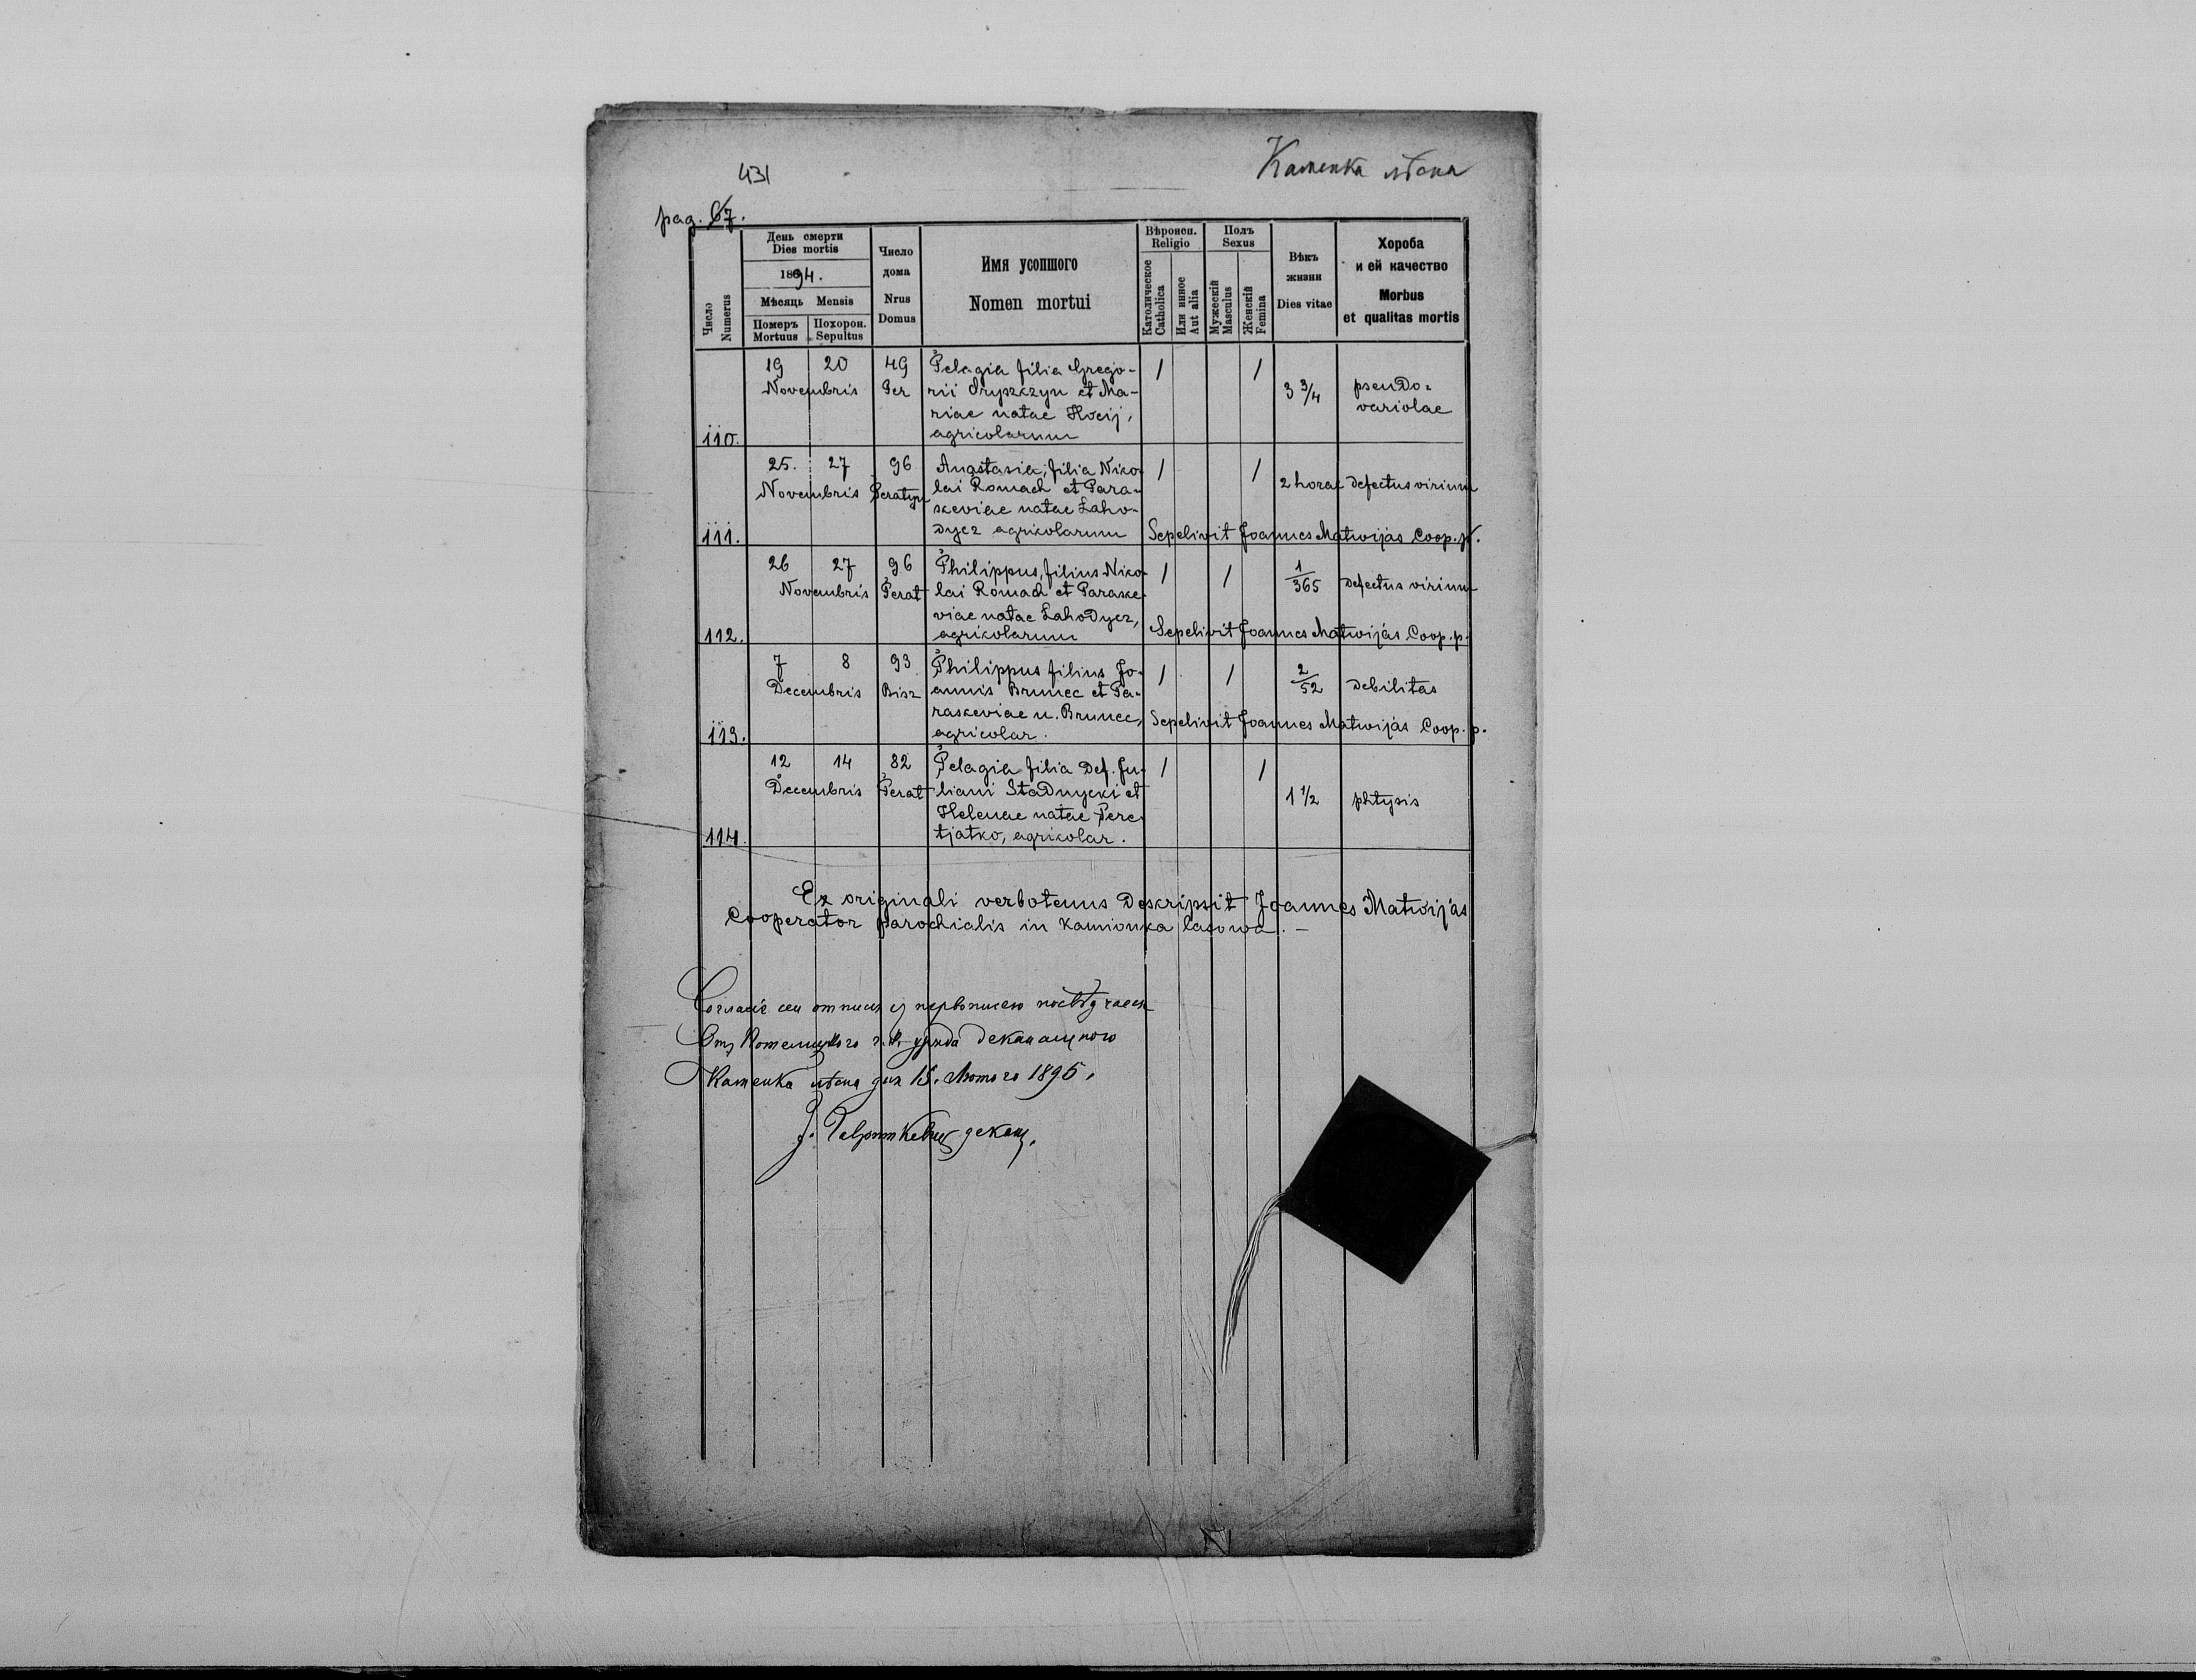 431
Каменка лѣсна
pag. 67.
Число
Numerus
День смерти
Dies mortis
1894.
Мѣсяць Mensis
Померъ
Mortuus
Похорон.
Sepultus
Число
дома
Nrus
Domus
Имя усопшого
Nomen mortui
Вѣроисп.
Religio
Католическое
Catholica
Или инное
Aut alia
Полъ
Sexus
Мужескій
Masculus
Женскій
Femina
Вѣкъ
жизни
Dies vitae
Хороба
и ей качество
Morbus
et qualitas mortis
110.
19 20
Novembris
49
Per
Pelagia filia Grego-
rii Hryszczyn et Ma-
riae natae Hocij,
agricolarum
1 1
3 3/4
pseudo-
variolae
111.
25. 27
Novembris
96
Peratyn
Anastasia, filia Niko-
lai Romach et Para-
skeviae natae Laho-
dycz agrikolarum
1 1
2 horae
defectus virium
Sepelivit Joannes Matwijás Coop. p.
112.
26 27
Novembris
96
Perat
Philippus, filius Niko-
lai Romach et Paraske-
viae natae Lahodycz,
agrikolarum
1 1
1/365
defectus virium
Sepelivit Joannes Matwijás Coop. p.
113.
7 8
Decembris
93
Bisz
Philippus filius Jo-
annis Brunec et Pa-
raskeviae n. Brunec,
agricolar.
1 1
2/52
debilitas
Sepelivit Joannes Matwijás Coop. p.
114.
12 14
Decembris
82
Perat
Pelagia filia def. Ju-
liani Stadnycki et
Helenae natae Pere-
tjatko, agrikolar.
1 1
1 1/2
phtysis
Ex originali verbotenus deskripsit Joannes Matwijás
Cooperator parochialis in Kamionka lasowa. –
Согласіе сеи отписи съ первописею посвѣдчаесь
Отъ Потелицкого г. к. уряда деканального
Каменка лѣсна дня 15. Лютого 1895.